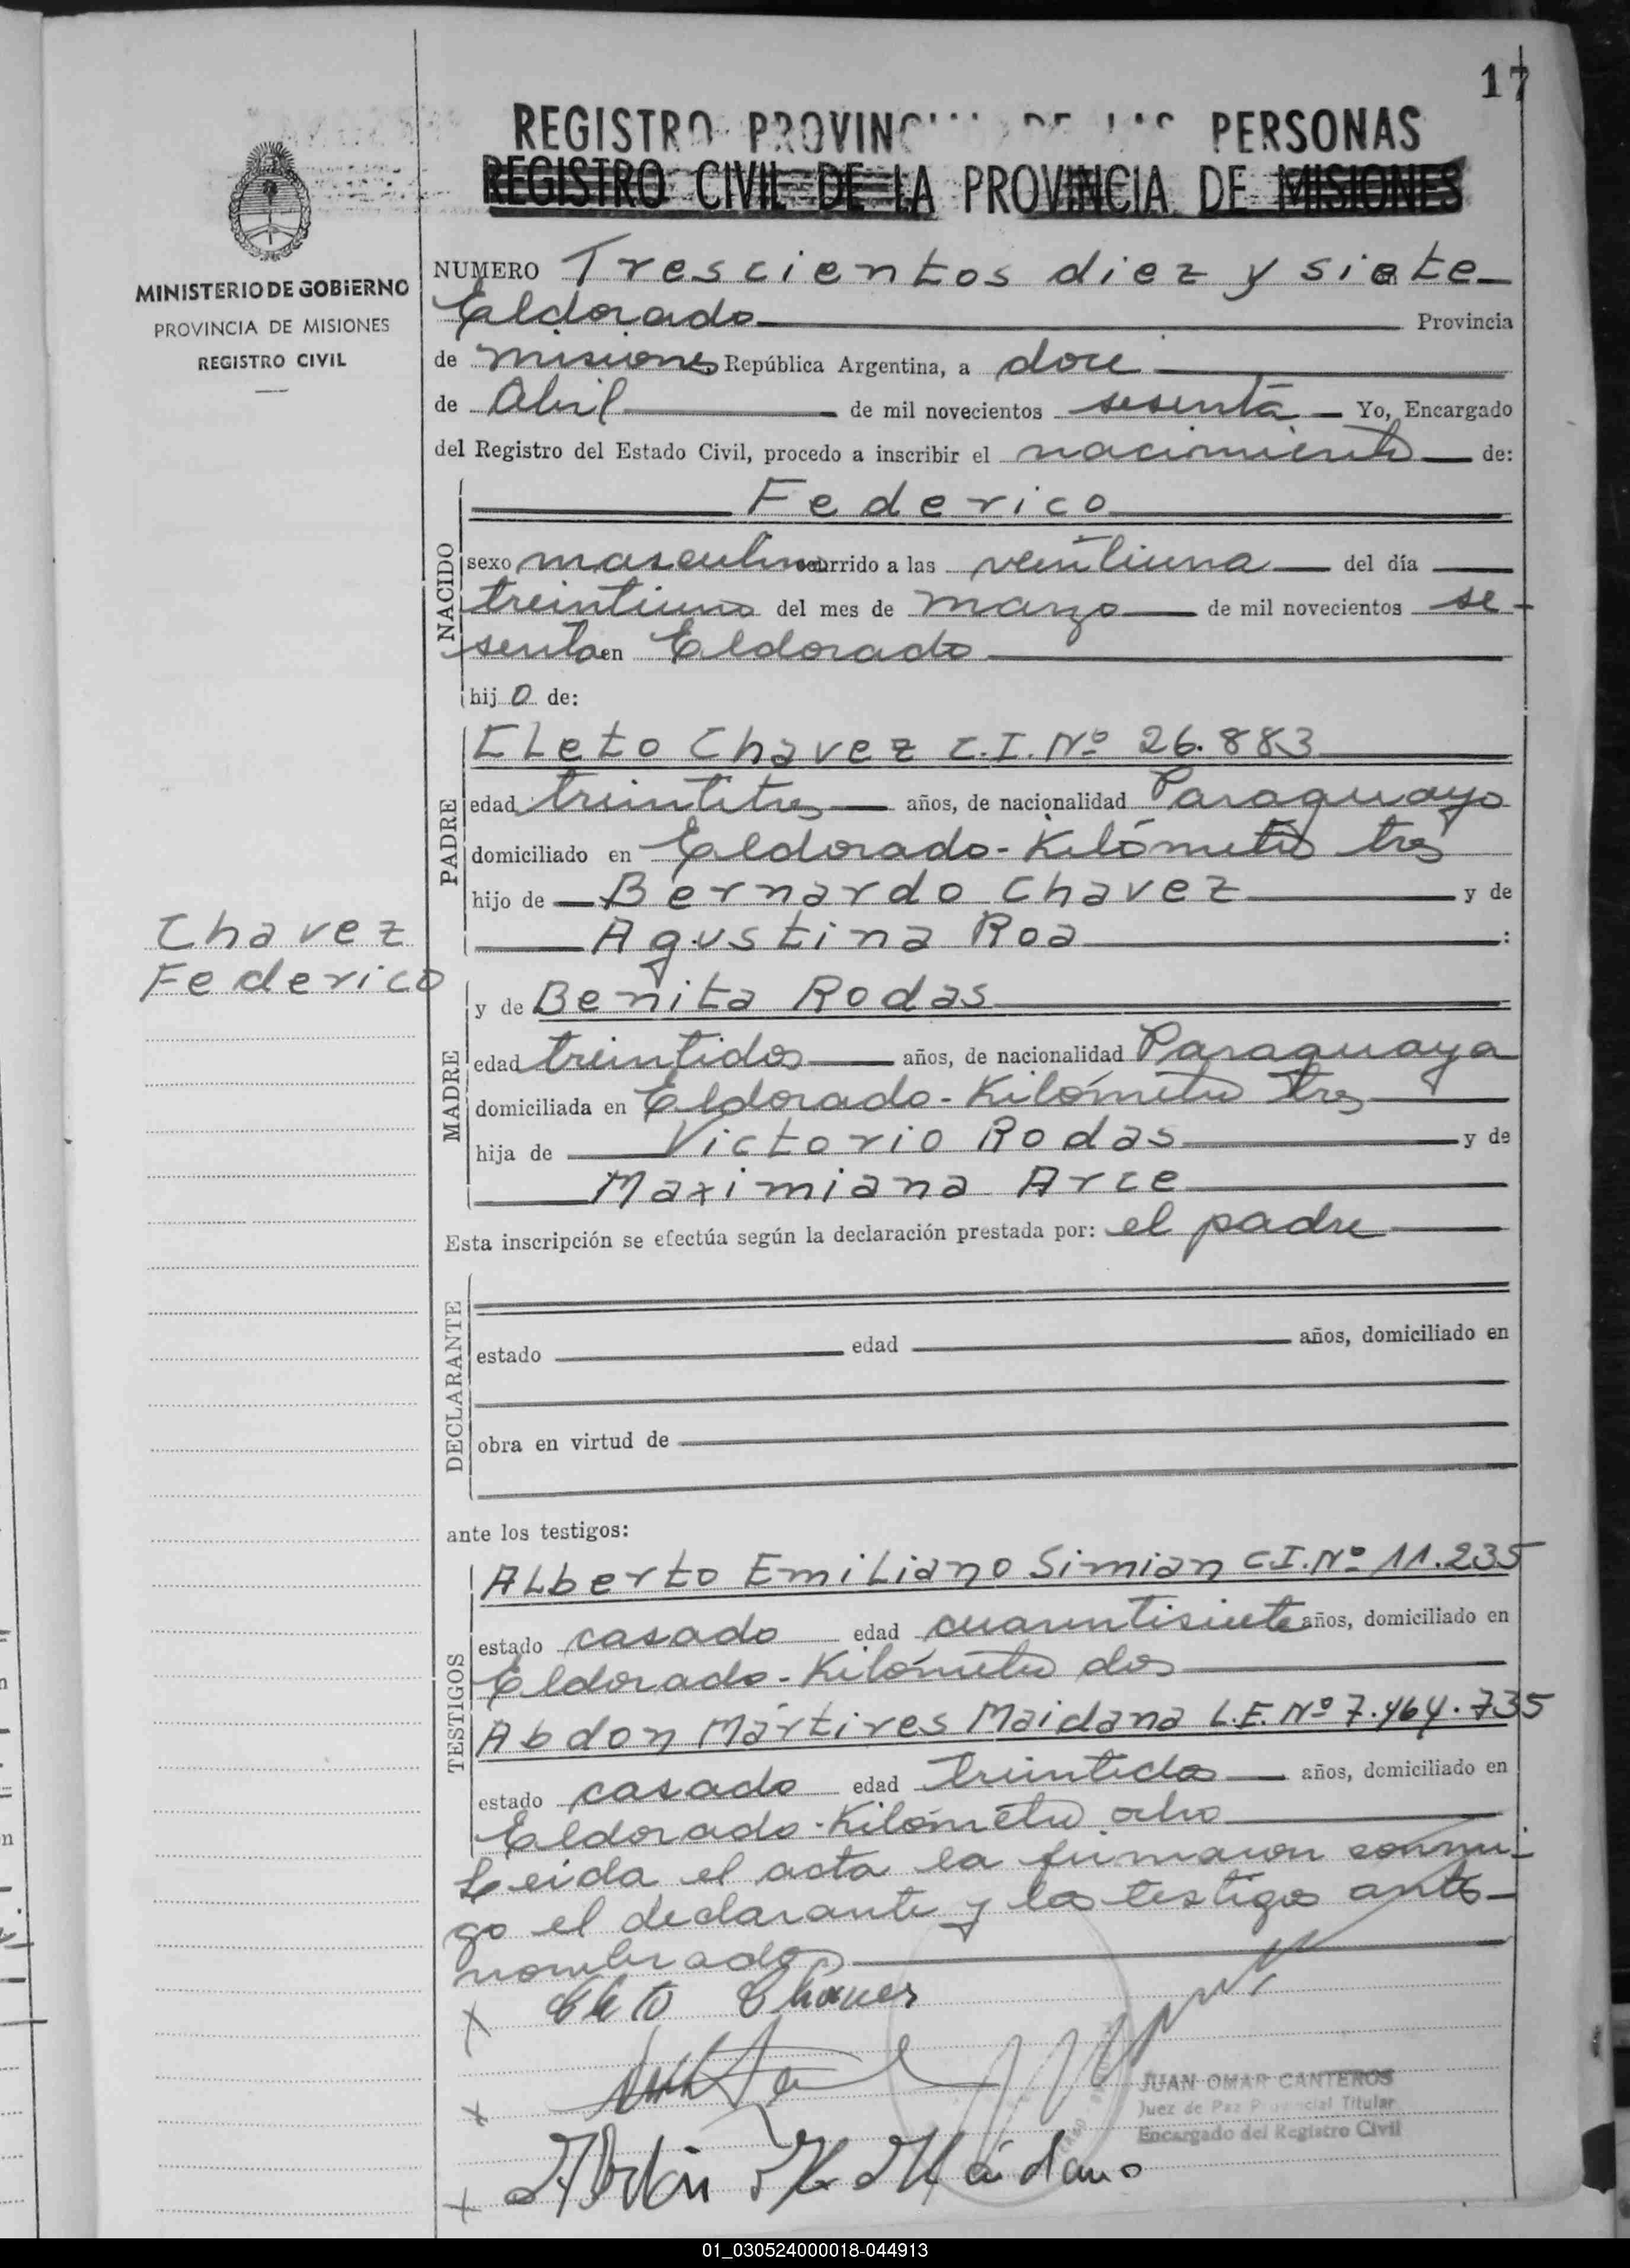 17
REGISTRO PROVINC DE LAS PERSONAS
REGISTRO CIVIL DE LA PROVINCIA DE MISIONES
MINISTERIO DE GOBIERNO
PROVINCIA DE MISIONES
REGISTRO CIVIL
NUMERO Trescientos diez y siete
Eldorado Provincia
de misiones República Argentina, a doce
de Abril de mil novecientos sesenta Yo, Encargado
del Registro del Estado Civil, procedo a inscribir el nacimiento de:
NACIDO
Federico
sexo masculino ocurrido a las veintiuna del día
treintiuno del mes de marzo de mil novecientos se-
senta en Eldorado
hijo de:
PADRE
Cleto Chavez C.I. Nº 26.883
edad treintitres años, de nacionalidad Paraguayo
domiciliado en Eldorado - Kilómetro tres
hijo de Bernardo Chavez y de
Agustina Roa :
Chavez
Federico
MADRE
y de Benita Rodas
edad treintidos años, de nacionalidad Paraguaya
domiciliada en Eldorado - Kilómetro tres
hija de Victorio Rodas y de
Maximiana Arce
Esta inscripción se efectúa según la declaración prestada por: el padre
DECLARANTE
estado edad años, domiciliado en
obra en virtud de
ante los testigos:
TESTIGOS
Alberto Emiliano Simian C.I. Nº 11.235
estado casado edad cuarentisiete años, domiciliado en
Eldorado - Kilómetro dos
Abdon Mártires Maidana L.E. Nº 7.464.735
estado casado edad treintidos años, domiciliado en
Eldorado - Kilómetro ocho
Leida el acta la firmaron conmi-
go el declarante y los testigos ante-
nombrados
x Cleto Chavez
x
x Abdón M. Maidana
JUAN OMAR CANTEROS
Juez de Paz Provincial Titular
Encargado del Registro Civil
01_030524000018-044913